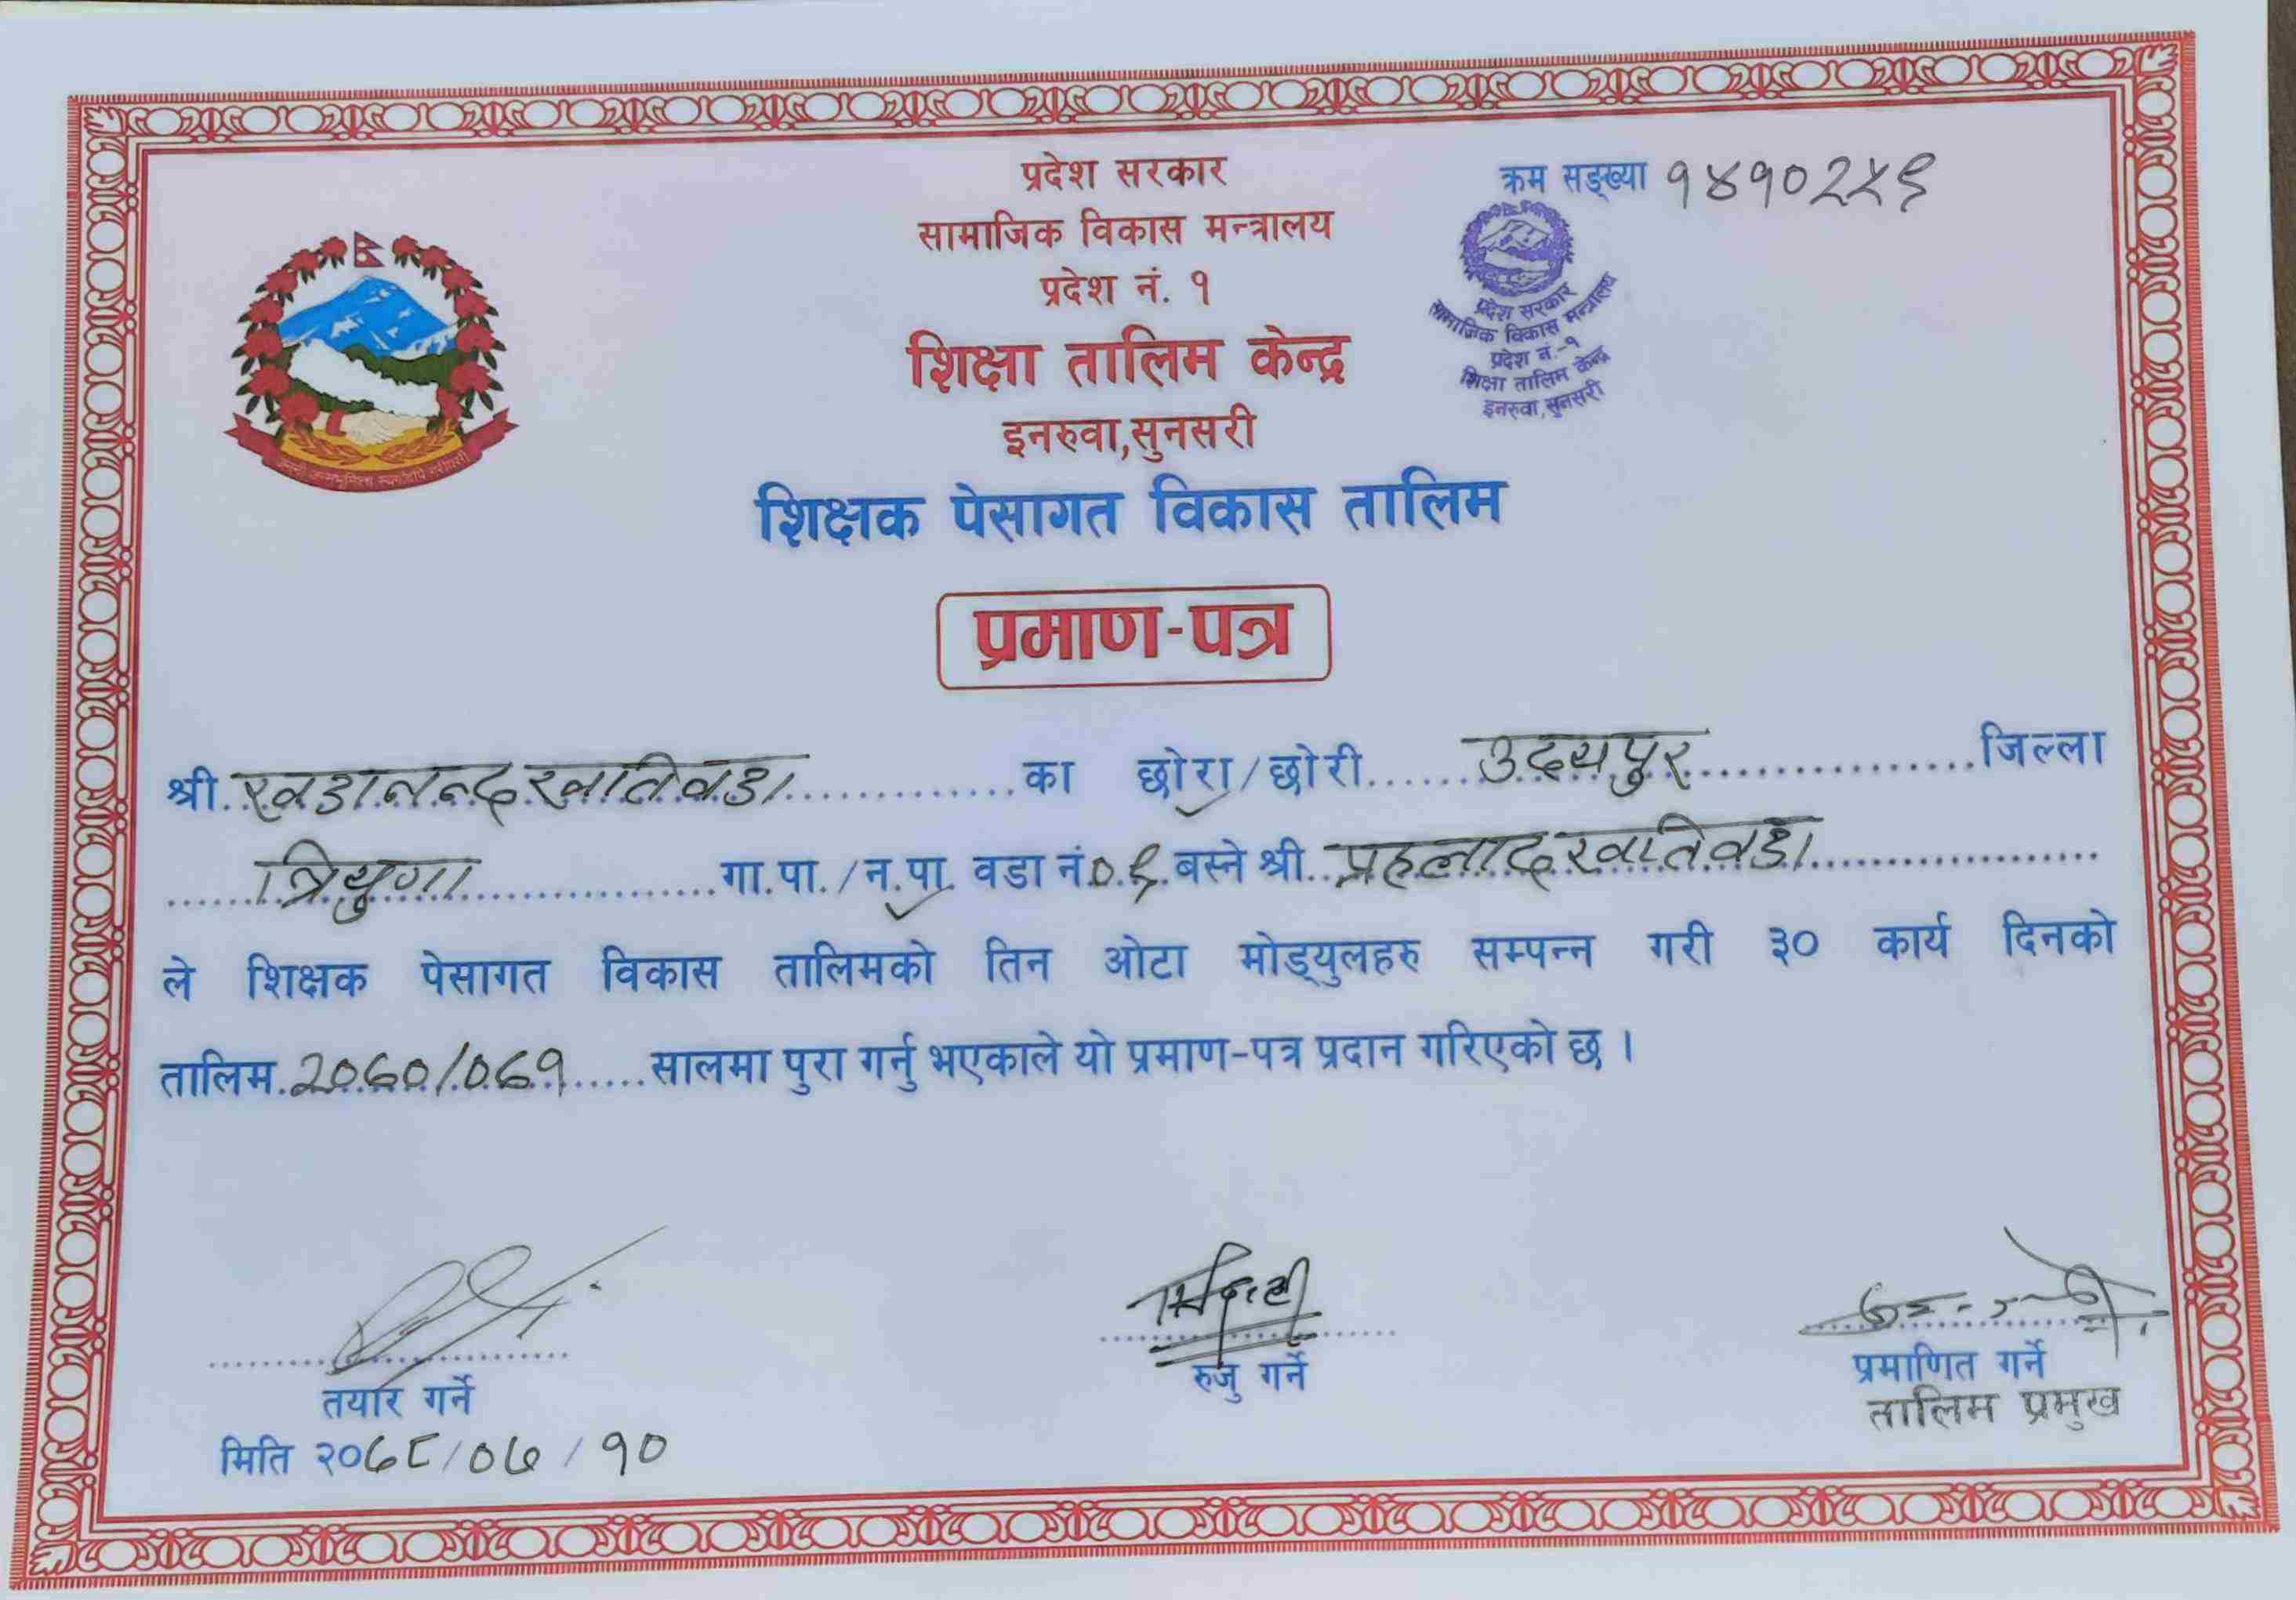 प्रदेश सरकार
सामाजिक विकास मन्त्रालय
प्रदेश नं. १
शिक्षा तालिम केन्द्र
इनरुवा,सुनसरी
क्रम सङ्ख्या १४१०२५९
प्रदेश सरकार
सामाजिक विकास मन्त्रालय
प्रदेश नं.-१
शिक्षा तालिम केन्द्र
इनरुवा, सुनसरी
शिक्षक पेसागत विकास तालिम
प्रमाण-पत्र
श्री. खडानन्द खतिवडा का छोरा/छोरी उदयपुर जिल्ला
त्रियुगा गा.पा./न.पा. वडा नं ०९ बस्ने श्री. प्रहलाद खतिवडा
ले शिक्षक पेसागत विकास तालिमको तिन ओटा मोड्युलहरु सम्पन्न गरी ३० कार्य दिनको
तालिम २०७०/०७१ सालमा पुरा गर्नु भएकाले यो प्रमाण-पत्र प्रदान गरिएको छ ।
तयार गर्ने
रुजु गर्ने
प्रमाणित गर्ने
तालिम प्रमुख
मिति २०७८/०७/१०